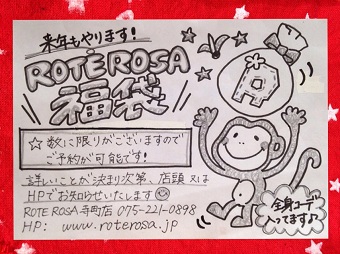 来年もやります!
ROTE ROSA
福袋
☆数に限りがございますので
ご予約が可能です!
詳しいことが決まり次第、店頭又は
HPでお知らせいたします
ROTE ROSA寺町店 075-221-0898
HP: www.roterosa.jp
R
全身コーデ
入ってます♪